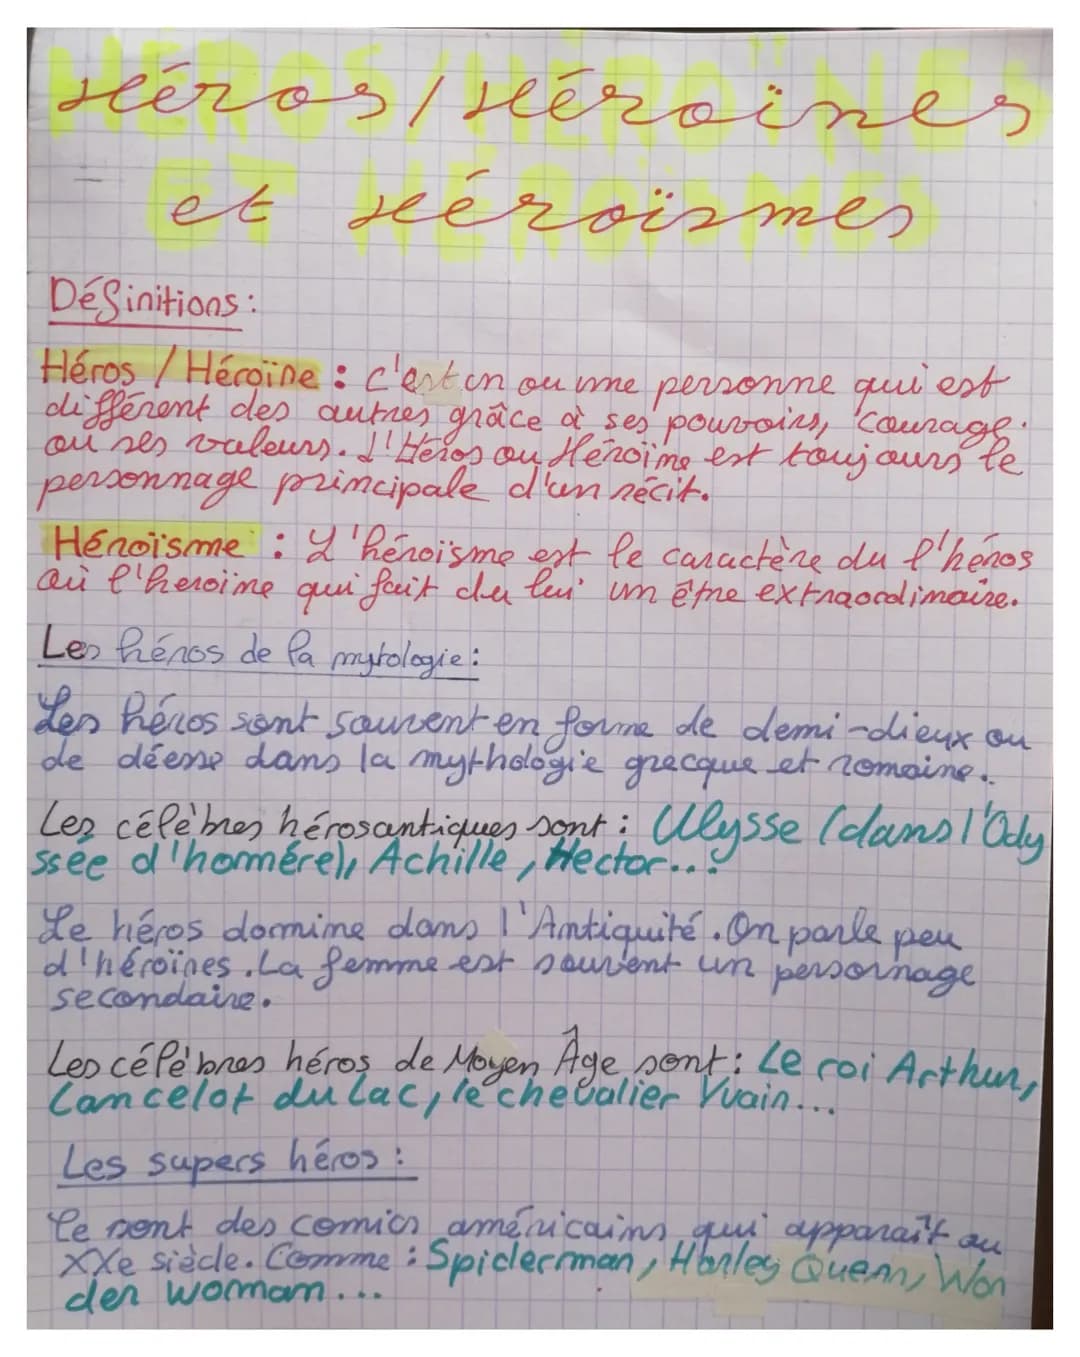 Héros / Héroïnes
et Héroïsmes
Définitions :
Héros / Héroïne : c'est un ou une personne qui est
différent des autres grâce à ses pouvoirs, courage
ou ses valeurs. L'Héros ou Héroïne est toujours le
personnage principale d'un récit.
Héroïsme : L'héroïsme est le caractère du l'héros
où l'heroïne qui fait du lui un être extraordinaire.
Les héros de la mytologie :
Les héros sont souvent en forme de demi-dieux ou
de déesse dans la mythologie grecque et romaine..
Les célèbres héros antiques sont : Ulysse (dans l'Ody
ssée d'homére), Achille, Hector...
Le héros domine dans l'Antiquité. On parle peu
d'héroïnes. La femme est souvent un personnage
secondaire.
Les célèbres héros de Moyen Âge sont : Le roi Arthur,
Lancelot du Lac, le chevalier Yvain...
Les supers héros :
Ce sont des comics américains qui apparaît au
XXe siècle. Comme : Spiderman, Harley Quenn, Won
der womman...